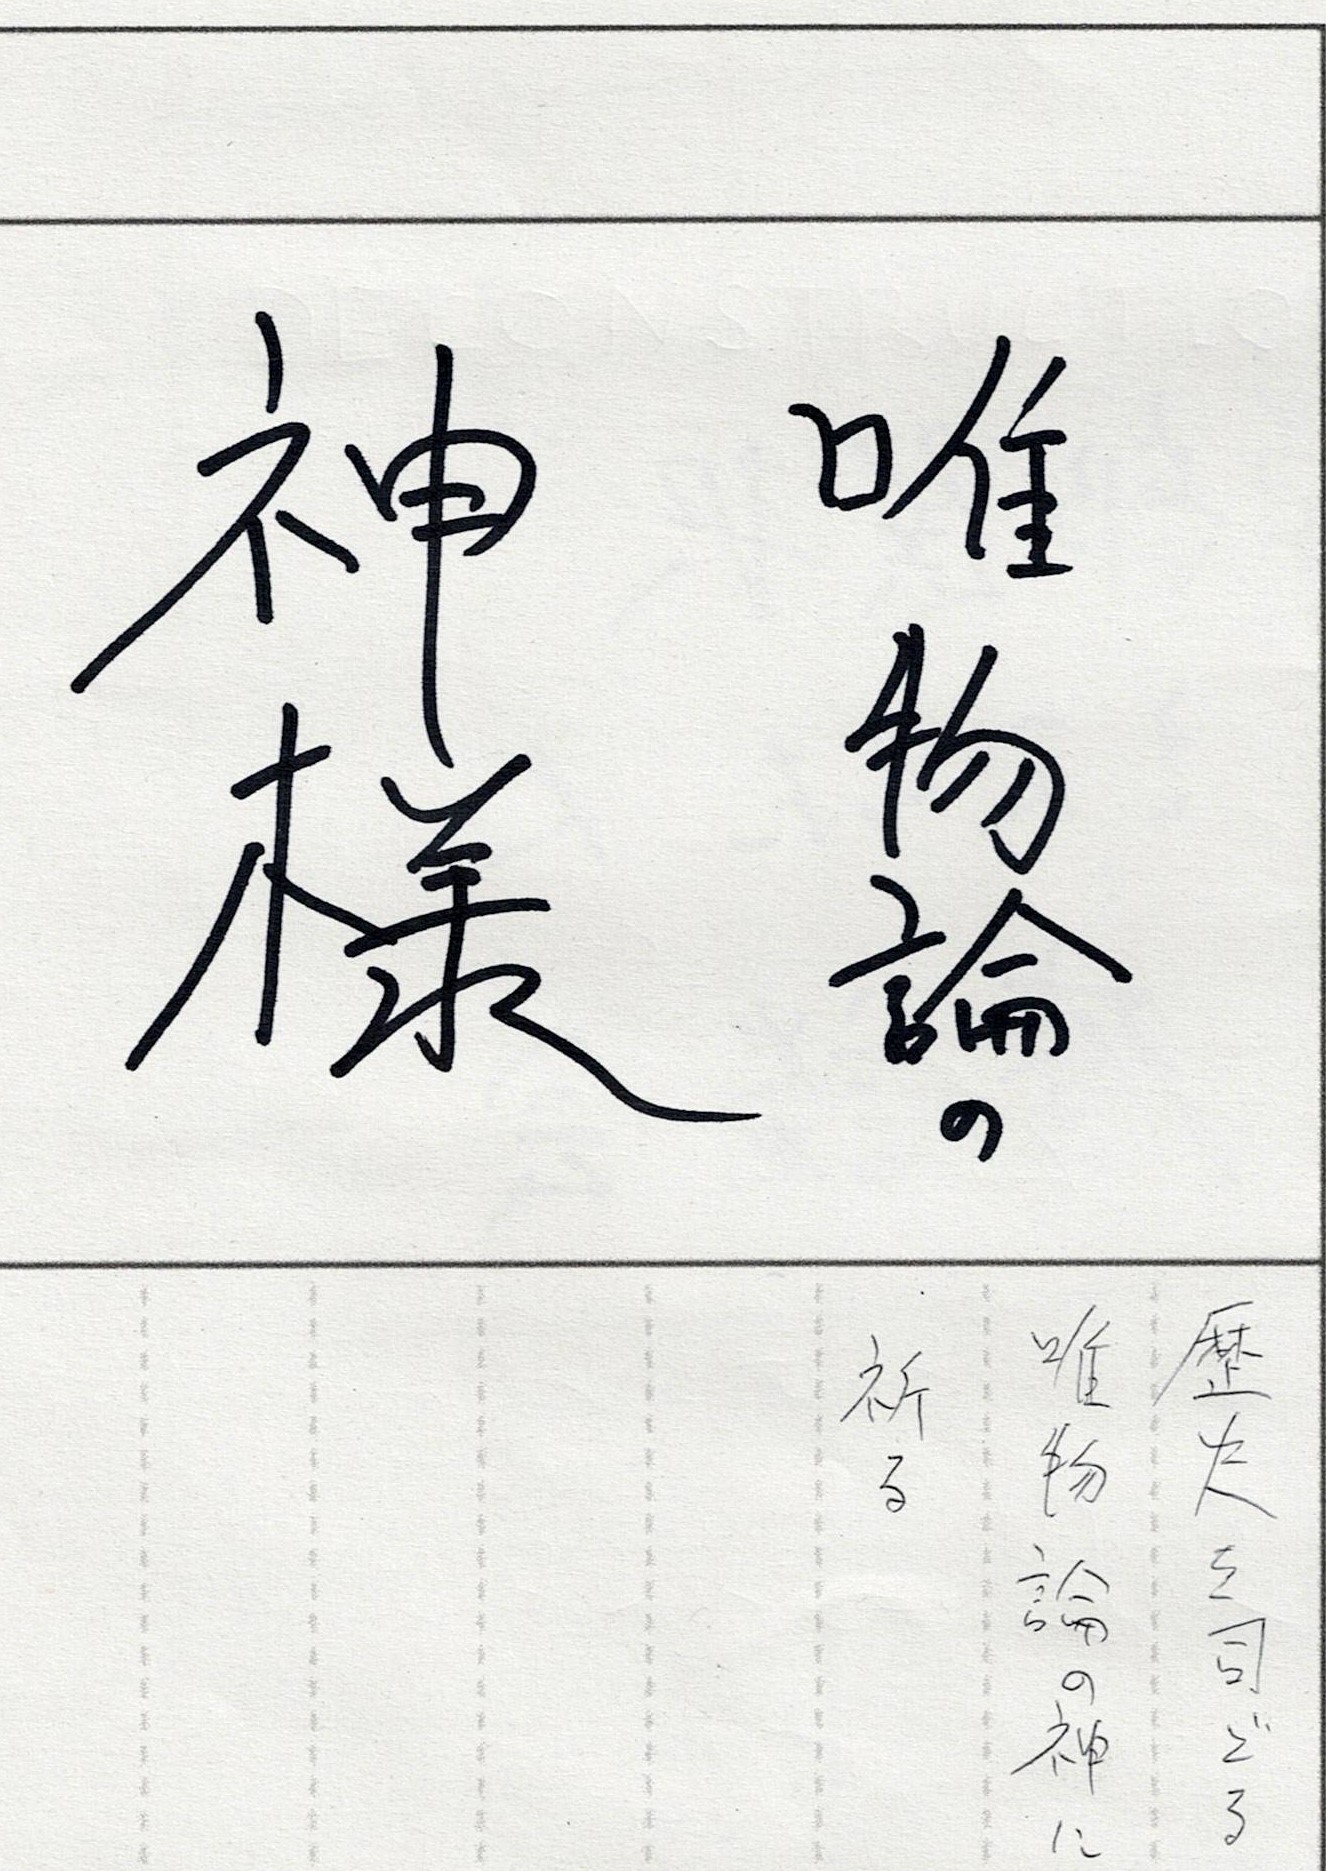 唯物論の
神様
歴史を司どる
唯物論の神に
祈る